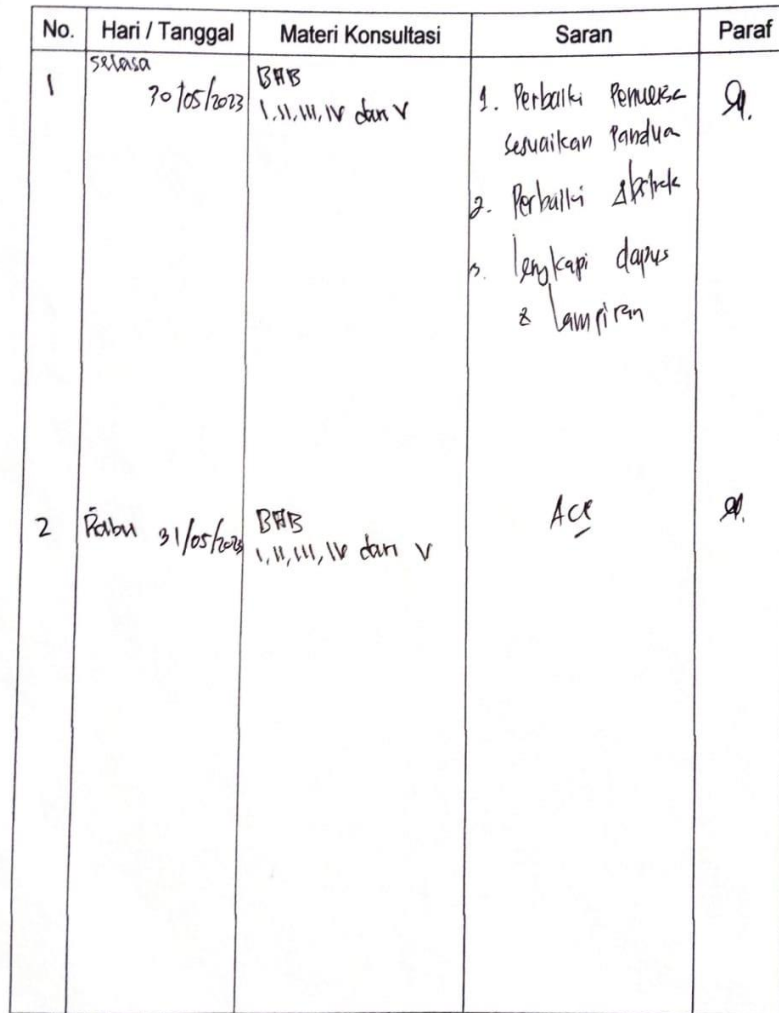 No. Hari / Tanggal Materi Konsultasi Saran Paraf
1
selasa
30/05/2023
BAB
I, II, III, IV dan V
1. Perbaiki
sesuaikan Pandua
2. Perbaiki Abstrak
3. lengkapi dapus
& Lampiran
2
Rabu 31/05/2023
BAB
I, II, III, IV dan V
Acc